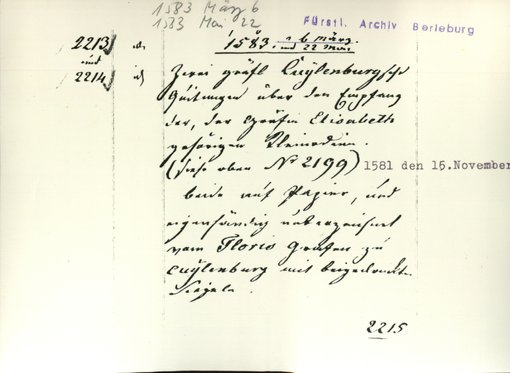 1583 März 6
1533 Mai 22
Fürstl. Archiv Berleburg
1583 6 März
und 22 Mai
2213
und
2214
Zwei gräfl Cuÿlenburgsche
Quitungen über den Empfang
der, der Gräfin Elisabeth
gehörigen Kleinodien.
(siehe oben No 2199) 1581 den 15.November
beide auf Papier, und
eigenhändig unterzeichnet
vom Floris Grafen zu
Cuÿlenburg mit beigedruckten
Siegeln.
2215